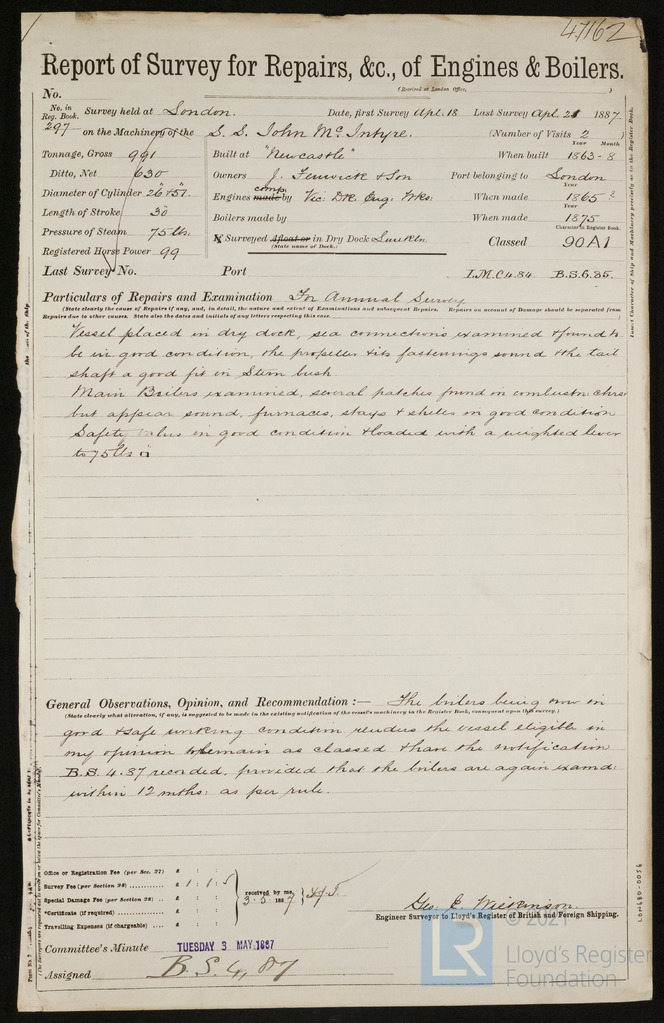 47162
Report of Survey for Repairs, &c., of Engines & Boilers.
(Received at London Office, )
No.
No. in Reg. Book. 297
Survey held at London. Date, first Survey Apl. 18 Last Survey Apl. 21 1887.
on the Machinery of the S. S. John McIntyre. (Number of Visits 2)
Year Month
Tonnage, Gross 991 Built at "Newcastle" When built 1863-8
Ditto, Net 630 Owners J. Fenwick & Son Port belonging to London
Diameter of Cylinder 26 & 51. Engines comp. made by Vic: Dk. Eng: Wks. When made 1865?
Year
Length of Stroke 30 Boilers made by When made 1875
Year
Pressure of Steam 75 lbs. If Surveyed Afloat or in Dry Dock Classed 90A1
(State name of Dock.)
Character in Register Book.
Registered Horse Power 99
Last Survey No. Port L.M.C 4.84 B.S.6.85.
Particulars of Repairs and Examination For Annual Survey
(State clearly the cause of Repairs if any, and, in detail, the nature and extent of Examinations and subsequent Repairs. Repairs on account of Damage should be separated from
Repairs due to other causes. State also the dates and initials of any letters respecting this case. )
Vessel placed in dry dock, sea connections examined & found to
be in good condition, the propeller & its fastenings sound & the tail
shaft a good fit in Stern bush.
Main Boilers examined, several patches found in combustn: chrs
but appear sound, furnaces, stays & shells in good condition
Safety valves in good condition & loaded with a weighted lever
to 75 lbs □
General Observations, Opinion, and Recommendation :— The boilers being now in
(State clearly what alteration, if any, is suggested to be made in the existing notification of the vessel's machinery in the Register Book, consequent upon this survey.)
good & safe working condition, renders the vessel eligible in
my opinion to remain as classed & have the notification
B.S. 4.87 recorded, provided that the boilers are again examd:
within 12 mths: as per rule.
Office or Registration Fee (per Sec. 27) £ : :
Survey Fee (per Section 28) £ 1 : 1 : 5
Special Damage Fee (per Section 28) £ : :
*Certificate (if required) £ : :
Travelling Expenses (if chargeable) £ : :
received by me,
3.5.1887
Geo. E. Wilkinson.
Engineer Surveyor to Lloyd's Register of British and Foreign Shipping.
Committee's Minute TUESDAY 3 MAY 1887
Assigned B.S. 4,87
Insert Character of Ship and Machinery precisely as in the Register Book.
LON680-0056
LR
© 2021
Lloyd's Register
Foundation